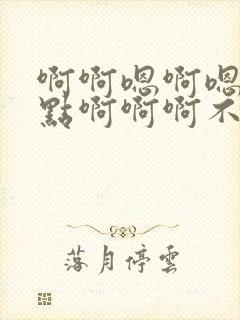 啊啊嗯啊嗯
點啊啊啊不
落月停雲